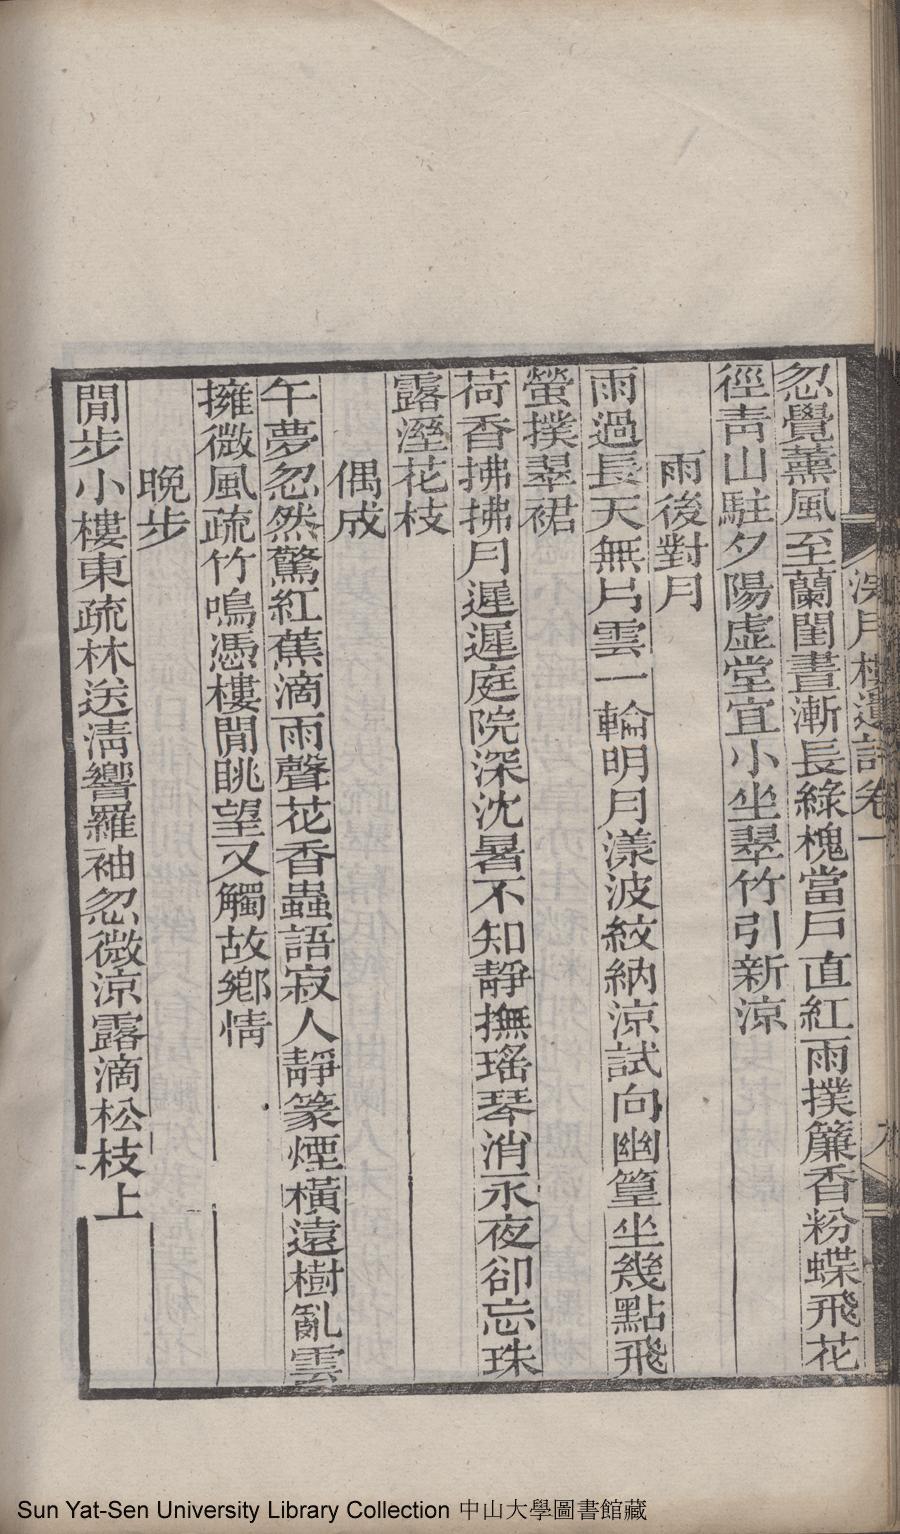 忽覺薰風至蘭閨晝漸長綠槐當戸直紅雨撲簾香粉蝶飛花
徑青山駐夕陽虛堂宜小坐翠竹引新涼
雨後對月
雨過長天無片雲一輪明月漾波紋納涼試向幽篁坐幾點飛
螢撲翠裙
荷香拂拂月遲遲庭院深沈暑不知靜撫瑤琴消永夜卻忘珠
露溼花枝
偶成
午夢忽然驚紅蕉滴雨聲花香蟲語寂人靜篆煙橫遠樹亂雲
擁微風疏竹鳴憑樓閒眺望又觸故鄉情
晚步
閒步小樓東疏林送清響羅袖忽微涼露滴松枝上
月樓遺詩卷一
Sun Yat-Sen University Library Collection 中山大學圖書館藏